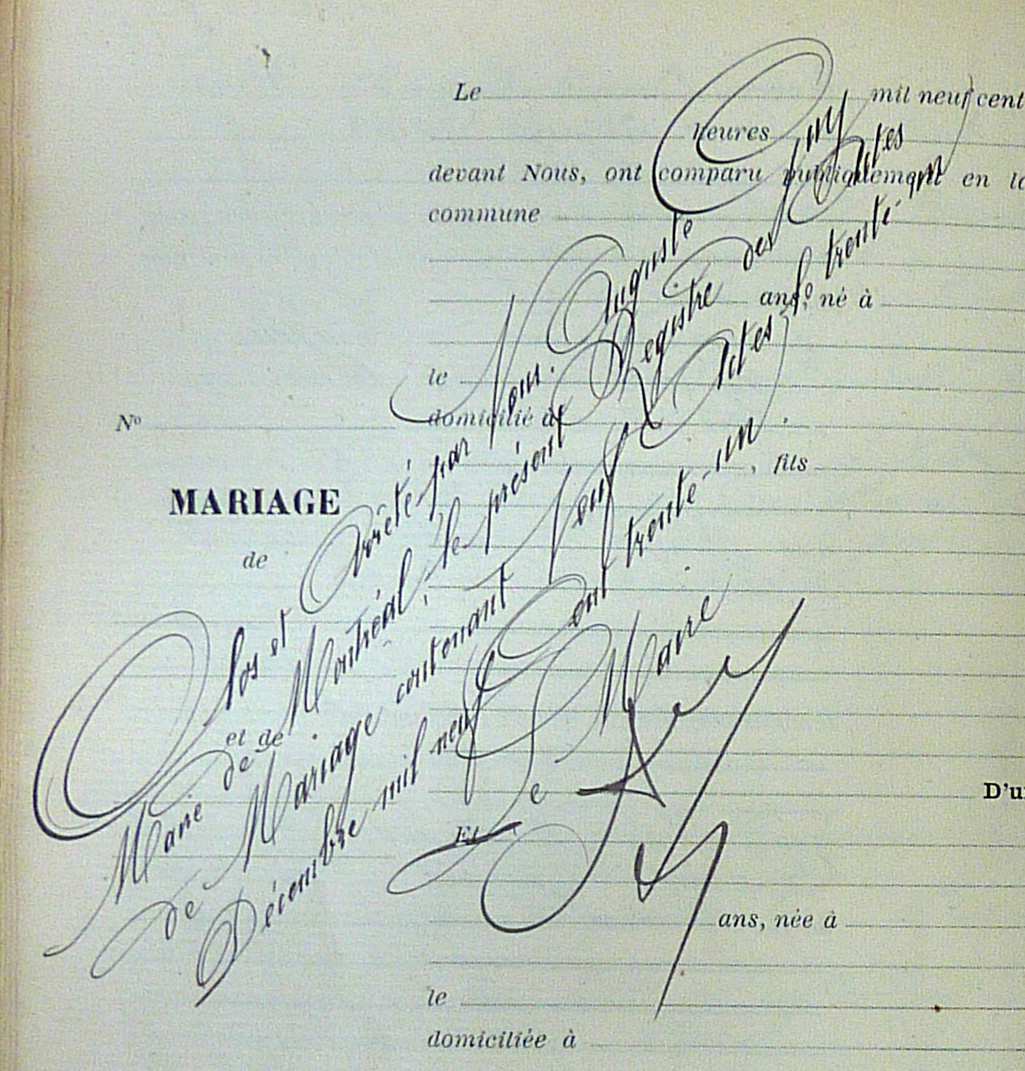 Le mil neuf cent
heures
devant Nous, ont comparu publiquement en la
commune
ans, né à
le
domicilié à
, fils
Nº
MARIAGE
de
et de
D'u
Et
ans, née à
le
domiciliée à
Clos et Arrêté par Nous. Auguste
Maire de Montréal, le présent Registre des Actes
de Mariage contenant Neuf Actes, le trente-un
Décembre mil neuf Cent trente-un.
Le Maire